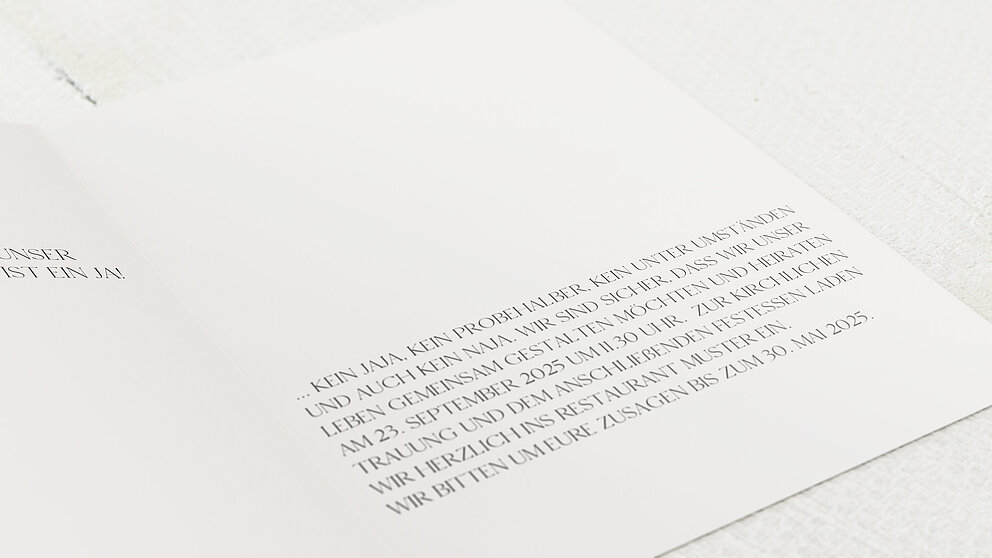 UNSER
IST EIN JA!
... KEIN JAJA, KEIN PROBEHALBER, KEIN UNTER UMSTÄNDEN
UND AUCH KEIN NAJA. WIR SIND SICHER, DASS WIR UNSER
LEBEN GEMEINSAM GESTALTEN MÖCHTEN UND HEIRATEN
AM 23. SEPTEMBER 2025 UM 11.30 UHR. ZUR KIRCHLICHEN
TRAUUNG UND DEM ANSCHLIEßENDEN FESTESSEN LADEN
WIR HERZLICH INS RESTAURANT MUSTER EIN.
WIR BITTEN UM EURE ZUSAGEN BIS ZUM 30. MAI 2025.